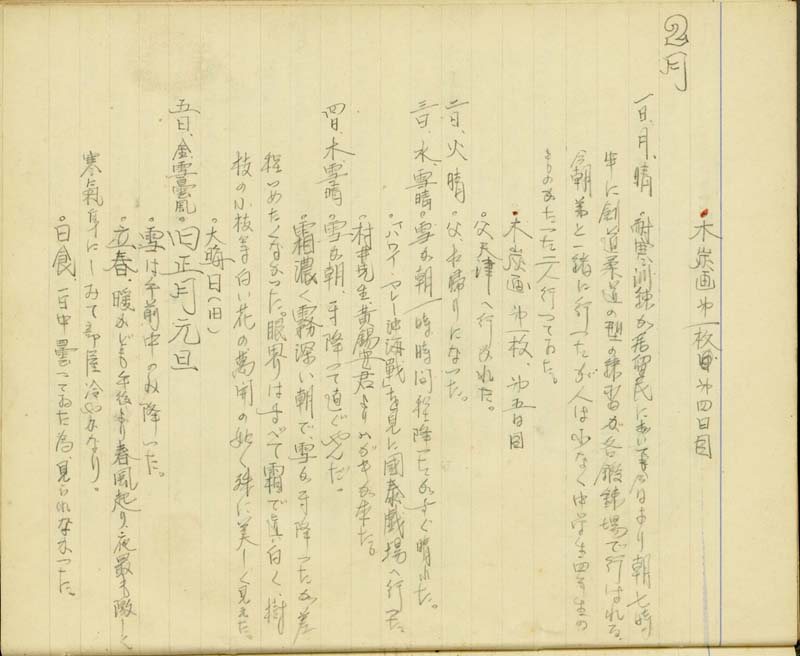 ・木炭画 第一枚目 第四日目
2月
一日、月、晴 ・耐寒訓練が居留民において本日より朝七時
半に剣道柔道の型の練習が各鍛錬場で行はれる。
今朝弟と一緒に行ったが人は少なく中学生四年生の
ものがたった二人行ってゐた。
・木炭画 第一枚、第五日目
・父天津へ行かれた。
二日、火、晴 ・父お帰りになった。
三日、水、雪晴 ・雪が朝一時時間程降ったがすぐ晴れた。
・「ハワイ・マレー沖海戦」を見に國泰戯場へ行った。
・村井先生黄錫 君よりハガキが来た。
四日、木、雪晴 ・雪が朝、寸降って直ぐやんだ。
・霜濃く霧深い朝で、雪が寸降ったが差
程つめたくなかった。眼界はすべて霜で真白く、樹
枝の小枝等白い花の萬開の如く殊に美しく見えた。
・大晦日(旧)
五日、金、雪曇風 ・旧正月元旦
・雪は午前中のみ降った。
・立春、暖かけれども午後より春風起り、夜最も激しく
寒氣身にしみて部屋冷やかなり。
・日食、一日中曇ってゐた為、見られなかった。